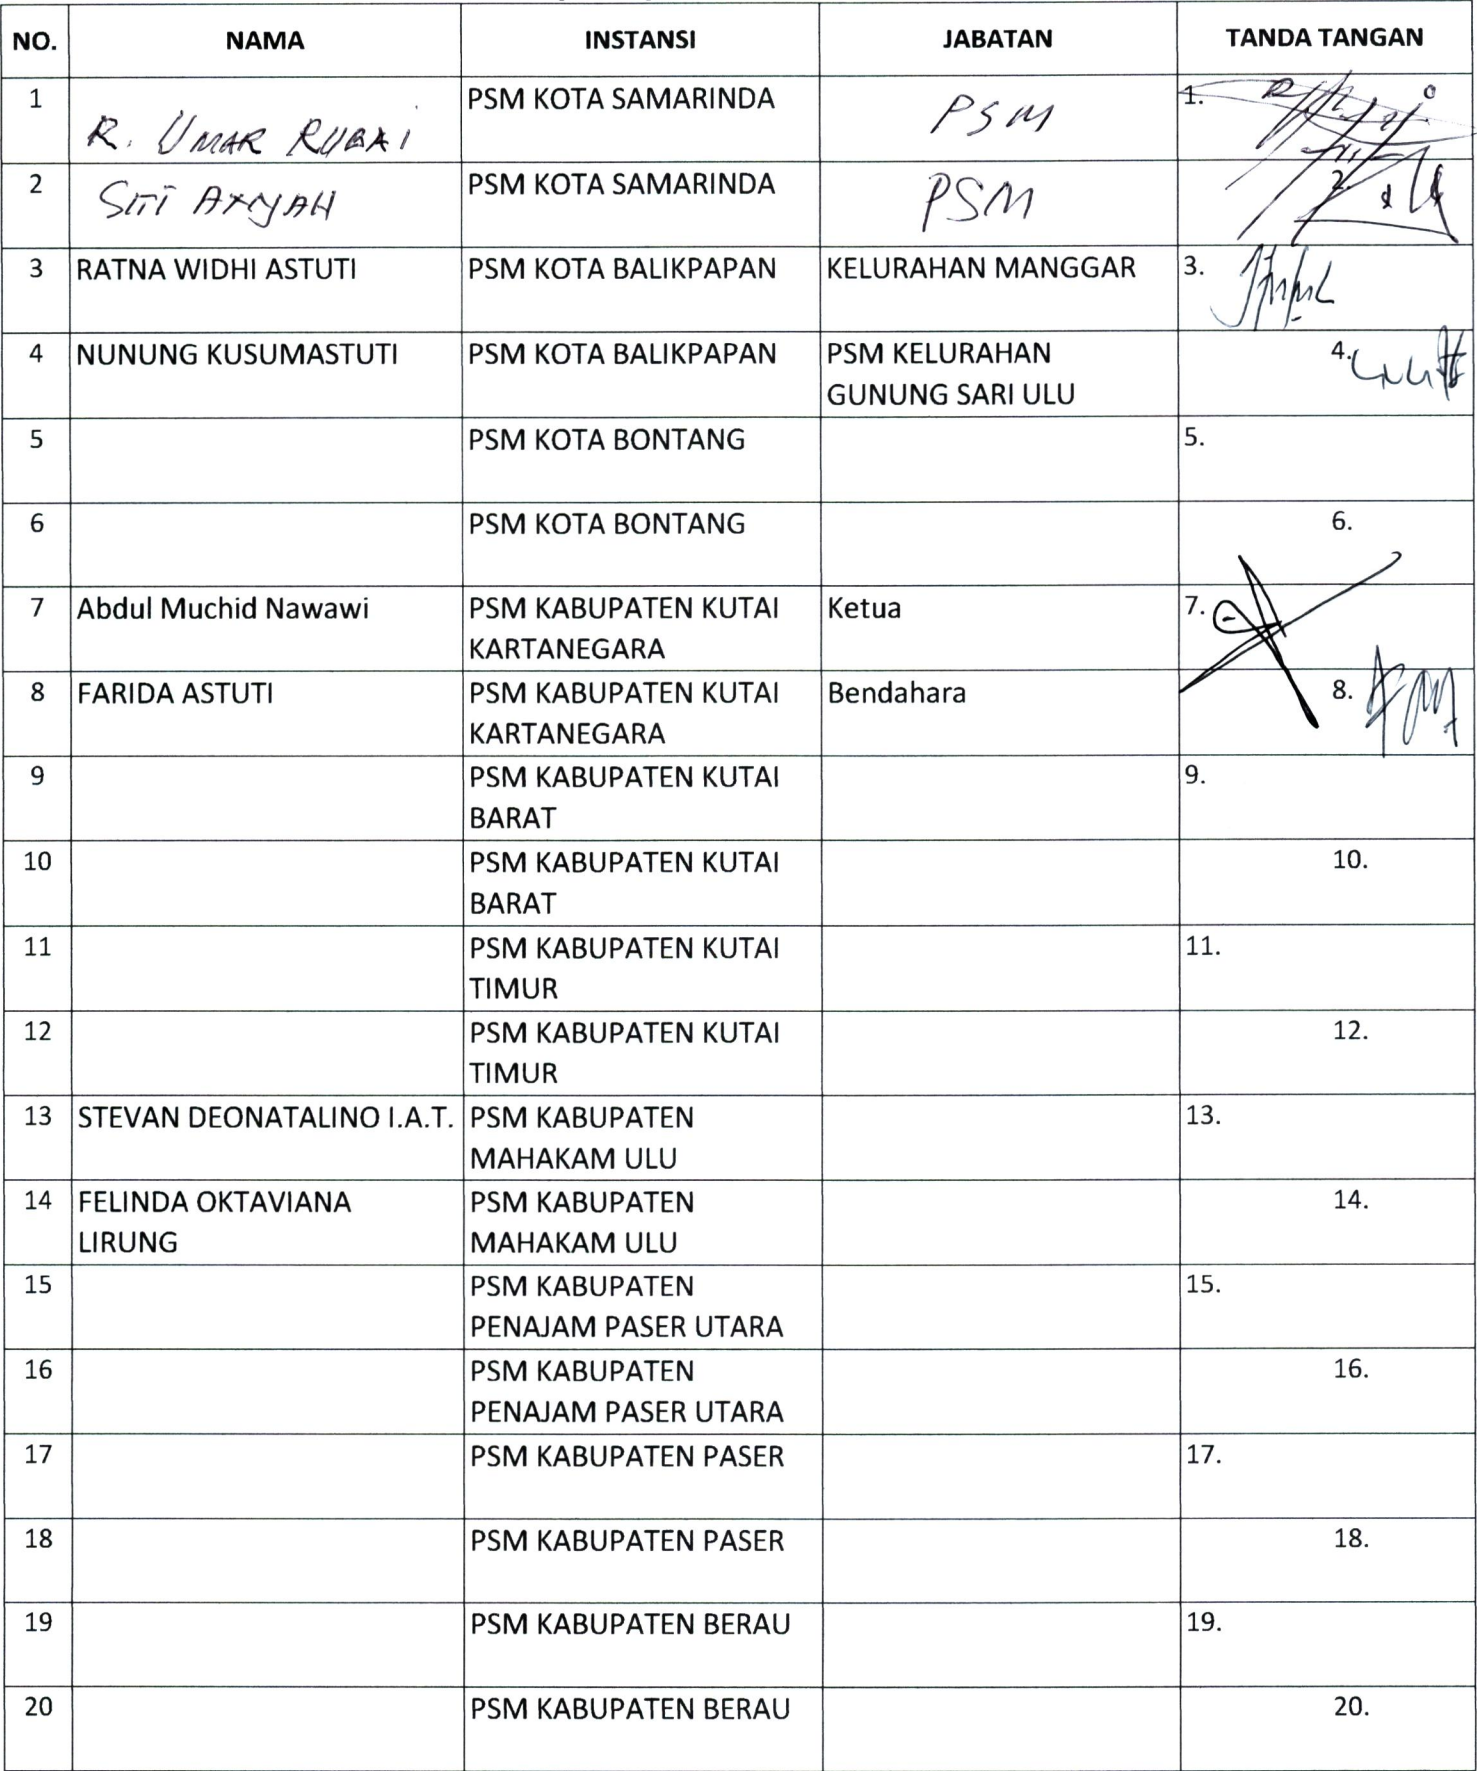 NO. NAMA INSTANSI JABATAN TANDA TANGAN
1 R. UMAR RUBAI PSM KOTA SAMARINDA PSM 1.
2 SITI AISYAH PSM KOTA SAMARINDA PSM 2.
3 RATNA WIDHI ASTUTI PSM KOTA BALIKPAPAN KELURAHAN MANGGAR 3.
4 NUNUNG KUSUMASTUTI PSM KOTA BALIKPAPAN PSM KELURAHAN 4.
GUNUNG SARI ULU
5 PSM KOTA BONTANG 5.
6 PSM KOTA BONTANG 6.
7 Abdul Muchid Nawawi PSM KABUPATEN KUTAI Ketua 7.
KARTANEGARA
8 FARIDA ASTUTI PSM KABUPATEN KUTAI Bendahara 8.
KARTANEGARA
9 PSM KABUPATEN KUTAI 9.
BARAT
10 PSM KABUPATEN KUTAI 10.
BARAT
11 PSM KABUPATEN KUTAI 11.
TIMUR
12 PSM KABUPATEN KUTAI 12.
TIMUR
13 STEVAN DEONATALINO I.A.T. PSM KABUPATEN 13.
MAHAKAM ULU
14 FELINDA OKTAVIANA PSM KABUPATEN 14.
LIRUNG MAHAKAM ULU
15 PSM KABUPATEN 15.
PENAJAM PASER UTARA
16 PSM KABUPATEN 16.
PENAJAM PASER UTARA
17 PSM KABUPATEN PASER 17.
18 PSM KABUPATEN PASER 18.
19 PSM KABUPATEN BERAU 19.
20 PSM KABUPATEN BERAU 20.